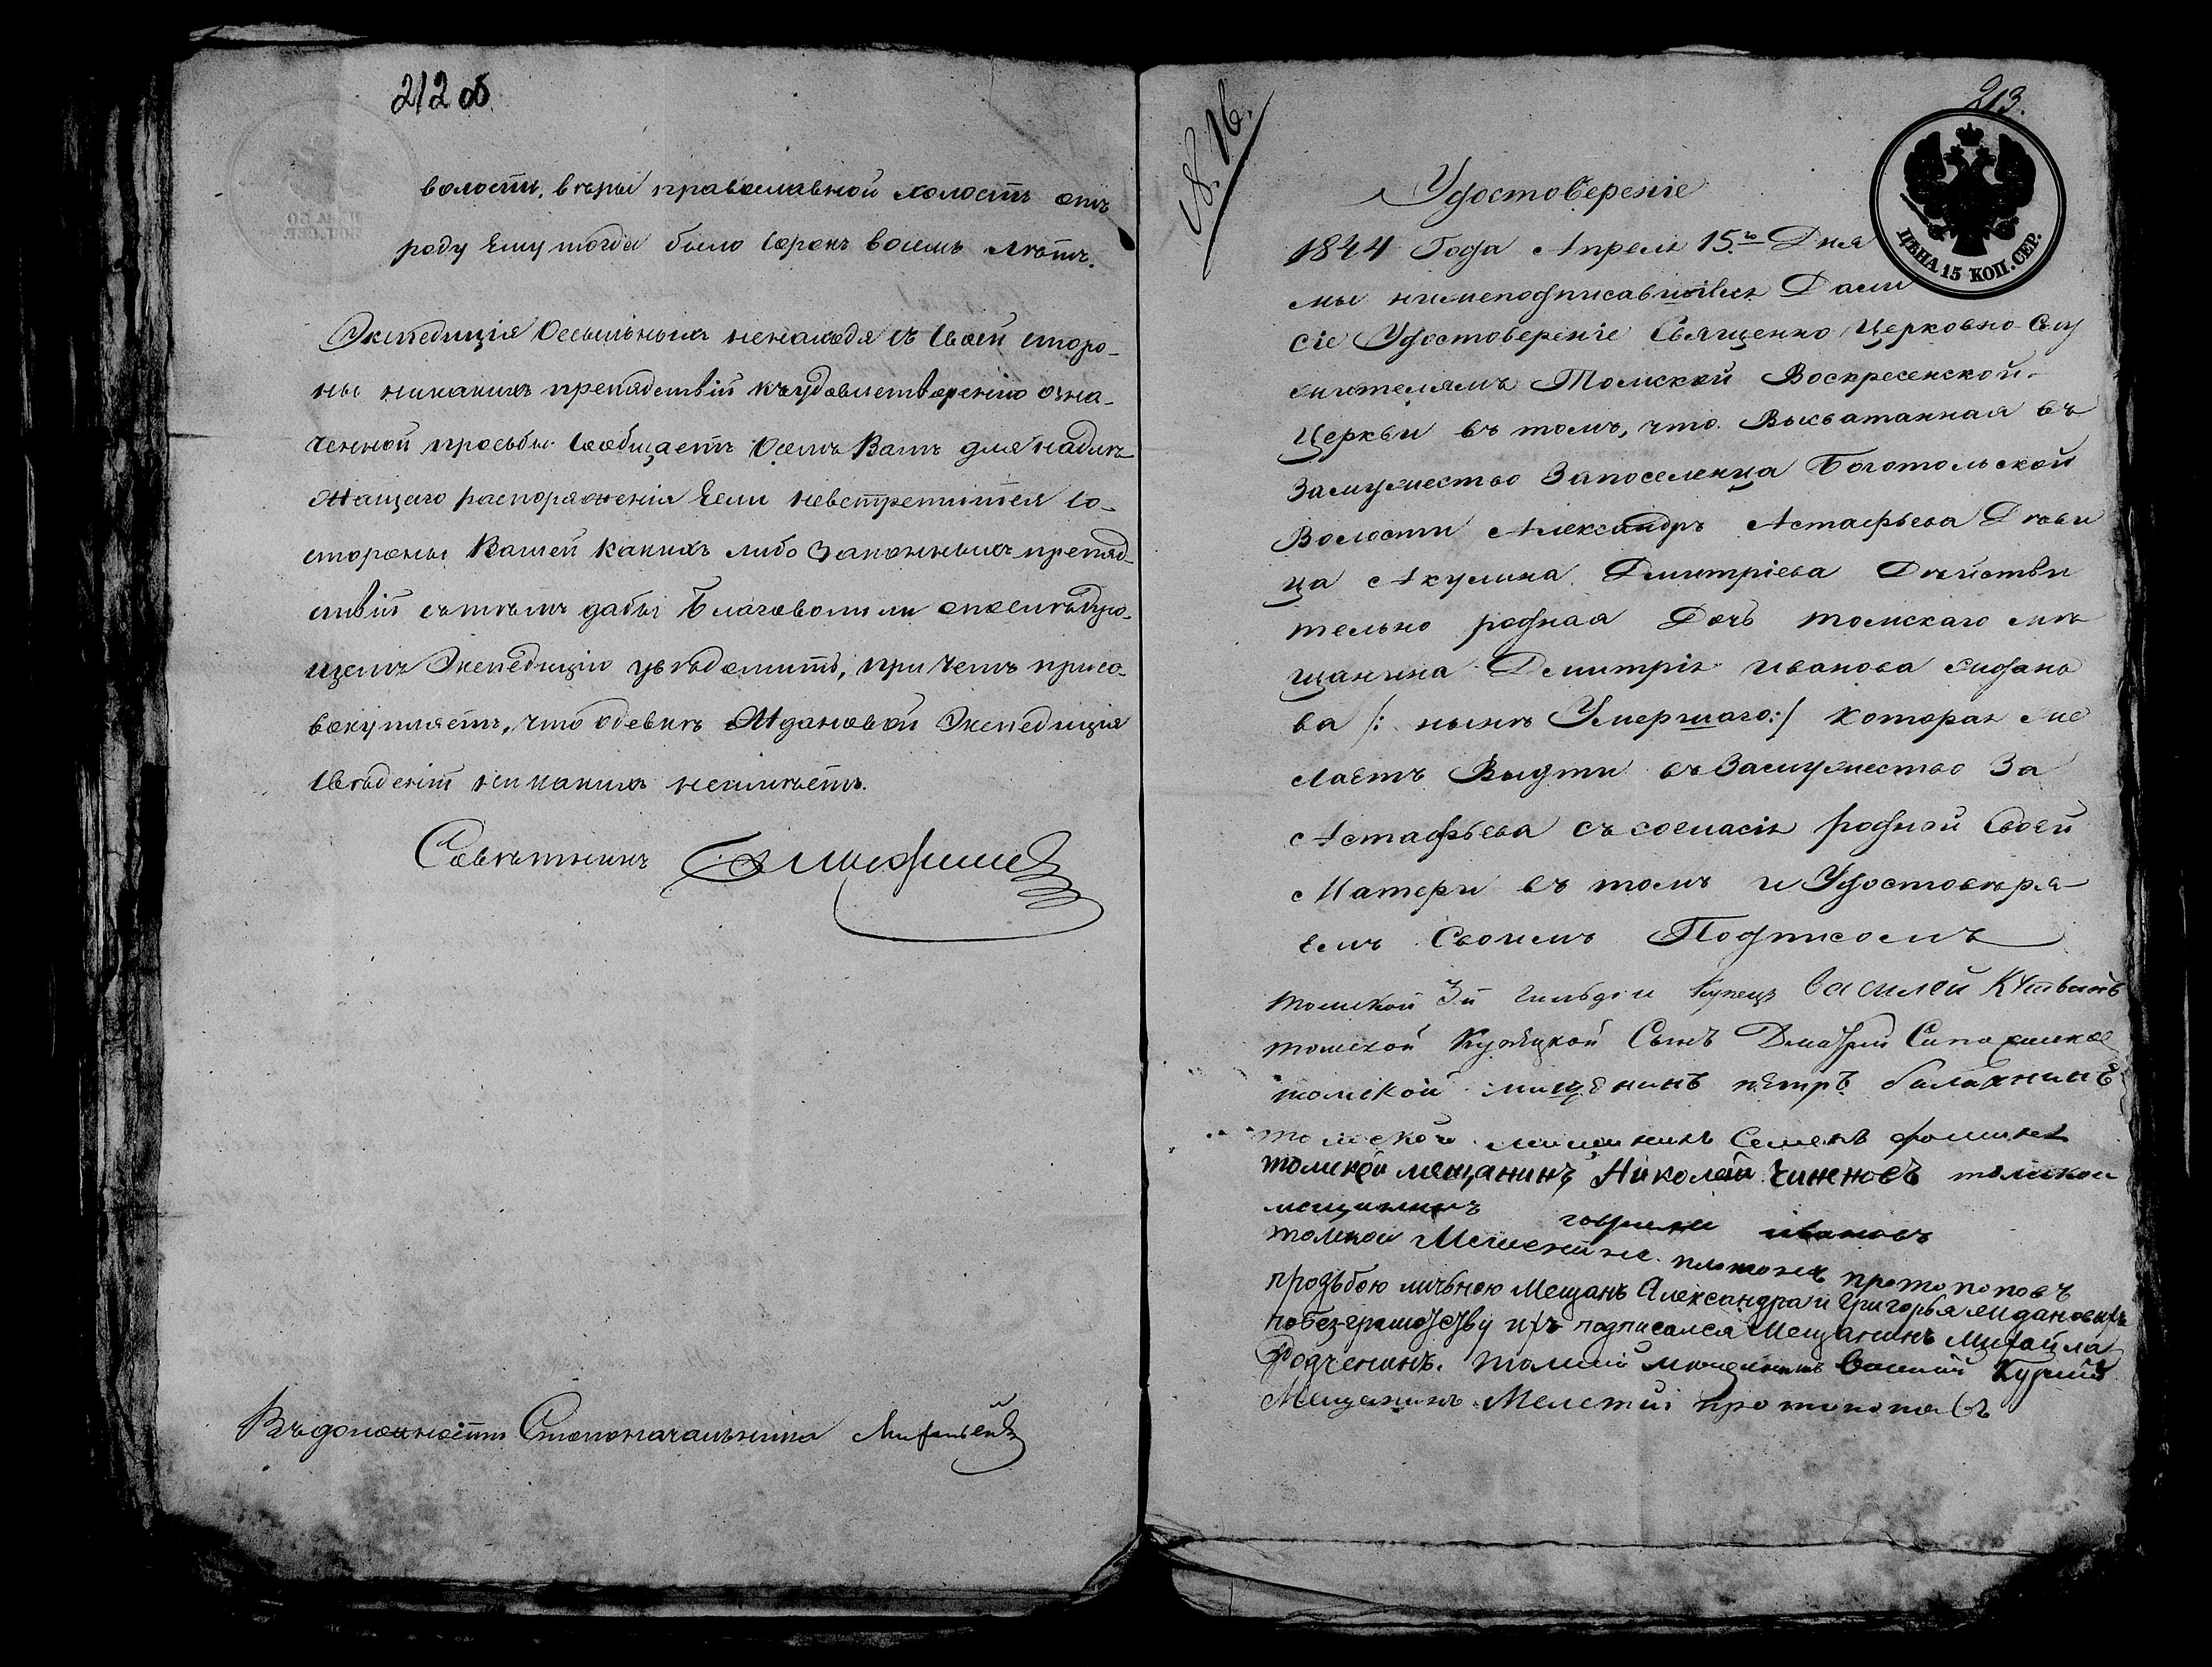 212 об
волости, вѣры православной холостъ отъ
роду Ему тогда было сорокъ восемь лѣтъ.
Экспедиція Ссыльныхъ ненаходя съ своей сторо-
ны никакихъ препядствій къ удовлетворенію озна-
ченной просьбы сообщаетъ осемъ Вамъ для надлѣ-
жащаго распоряженія Если невстретится со-
стороны Вашей какихъ либо законныхъ препяд-
ствій съ тѣмъ дабы Благоволили опослѣдую-
щемъ Экспедицію увѣдомить, при чемъ присо-
вокупляетъ, что одевкѣ Ждановой Экспедиція
свѣденій ни какихъ неимѣетъ.
Совѣтникъ
Въ должности Столоначальника
№ 16.
213.
Удостоверенiе
1844 Года Апреля 15.го Дня
ЦѢНА 15 КОП. СЕР.
мы нижеподписавшiеся Дали
сiе Удостоверенiе Священно Церковно Слу
жителямъ Томской Воскресенской
Церкви въ томъ, что Высватанная въ
Замужество Запоселенца Боготольской
Волости Александръ Астафьева Дѣви
ца Акулина Дмитрiева Дѣйстви
тельно родная Дочь томскаго мѣ
щанина Дмитрiя иванова Ждано
ва /: нынѣ Умершаго:/ которая же
лаетъ Выдти въ Замужество За
Астафьева съ согласiя родной своей
Матери въ томъ и Удостовѣря
емъ Своимъ Подписомъ
томской 3й гильдiи купецъ Василей
томской Купецкой Сынъ Дмитрий
томской мищенинъ петръ балахнинъ
томской Семенъ фоминъ
томской мещанинъ Николай Чиненовъ томской
мещининъ гаврила ивановъ
томской Мещенинъ платонъ протопоповъ
прозьбою личьною мещанъ Александра и Григорья Ждановыхъ
побезграмотству ихъ подписался Мещанинъ Михайла
Родченинъ. томский мещининъ Василий
Мещанинъ Мелетий протопоповъ